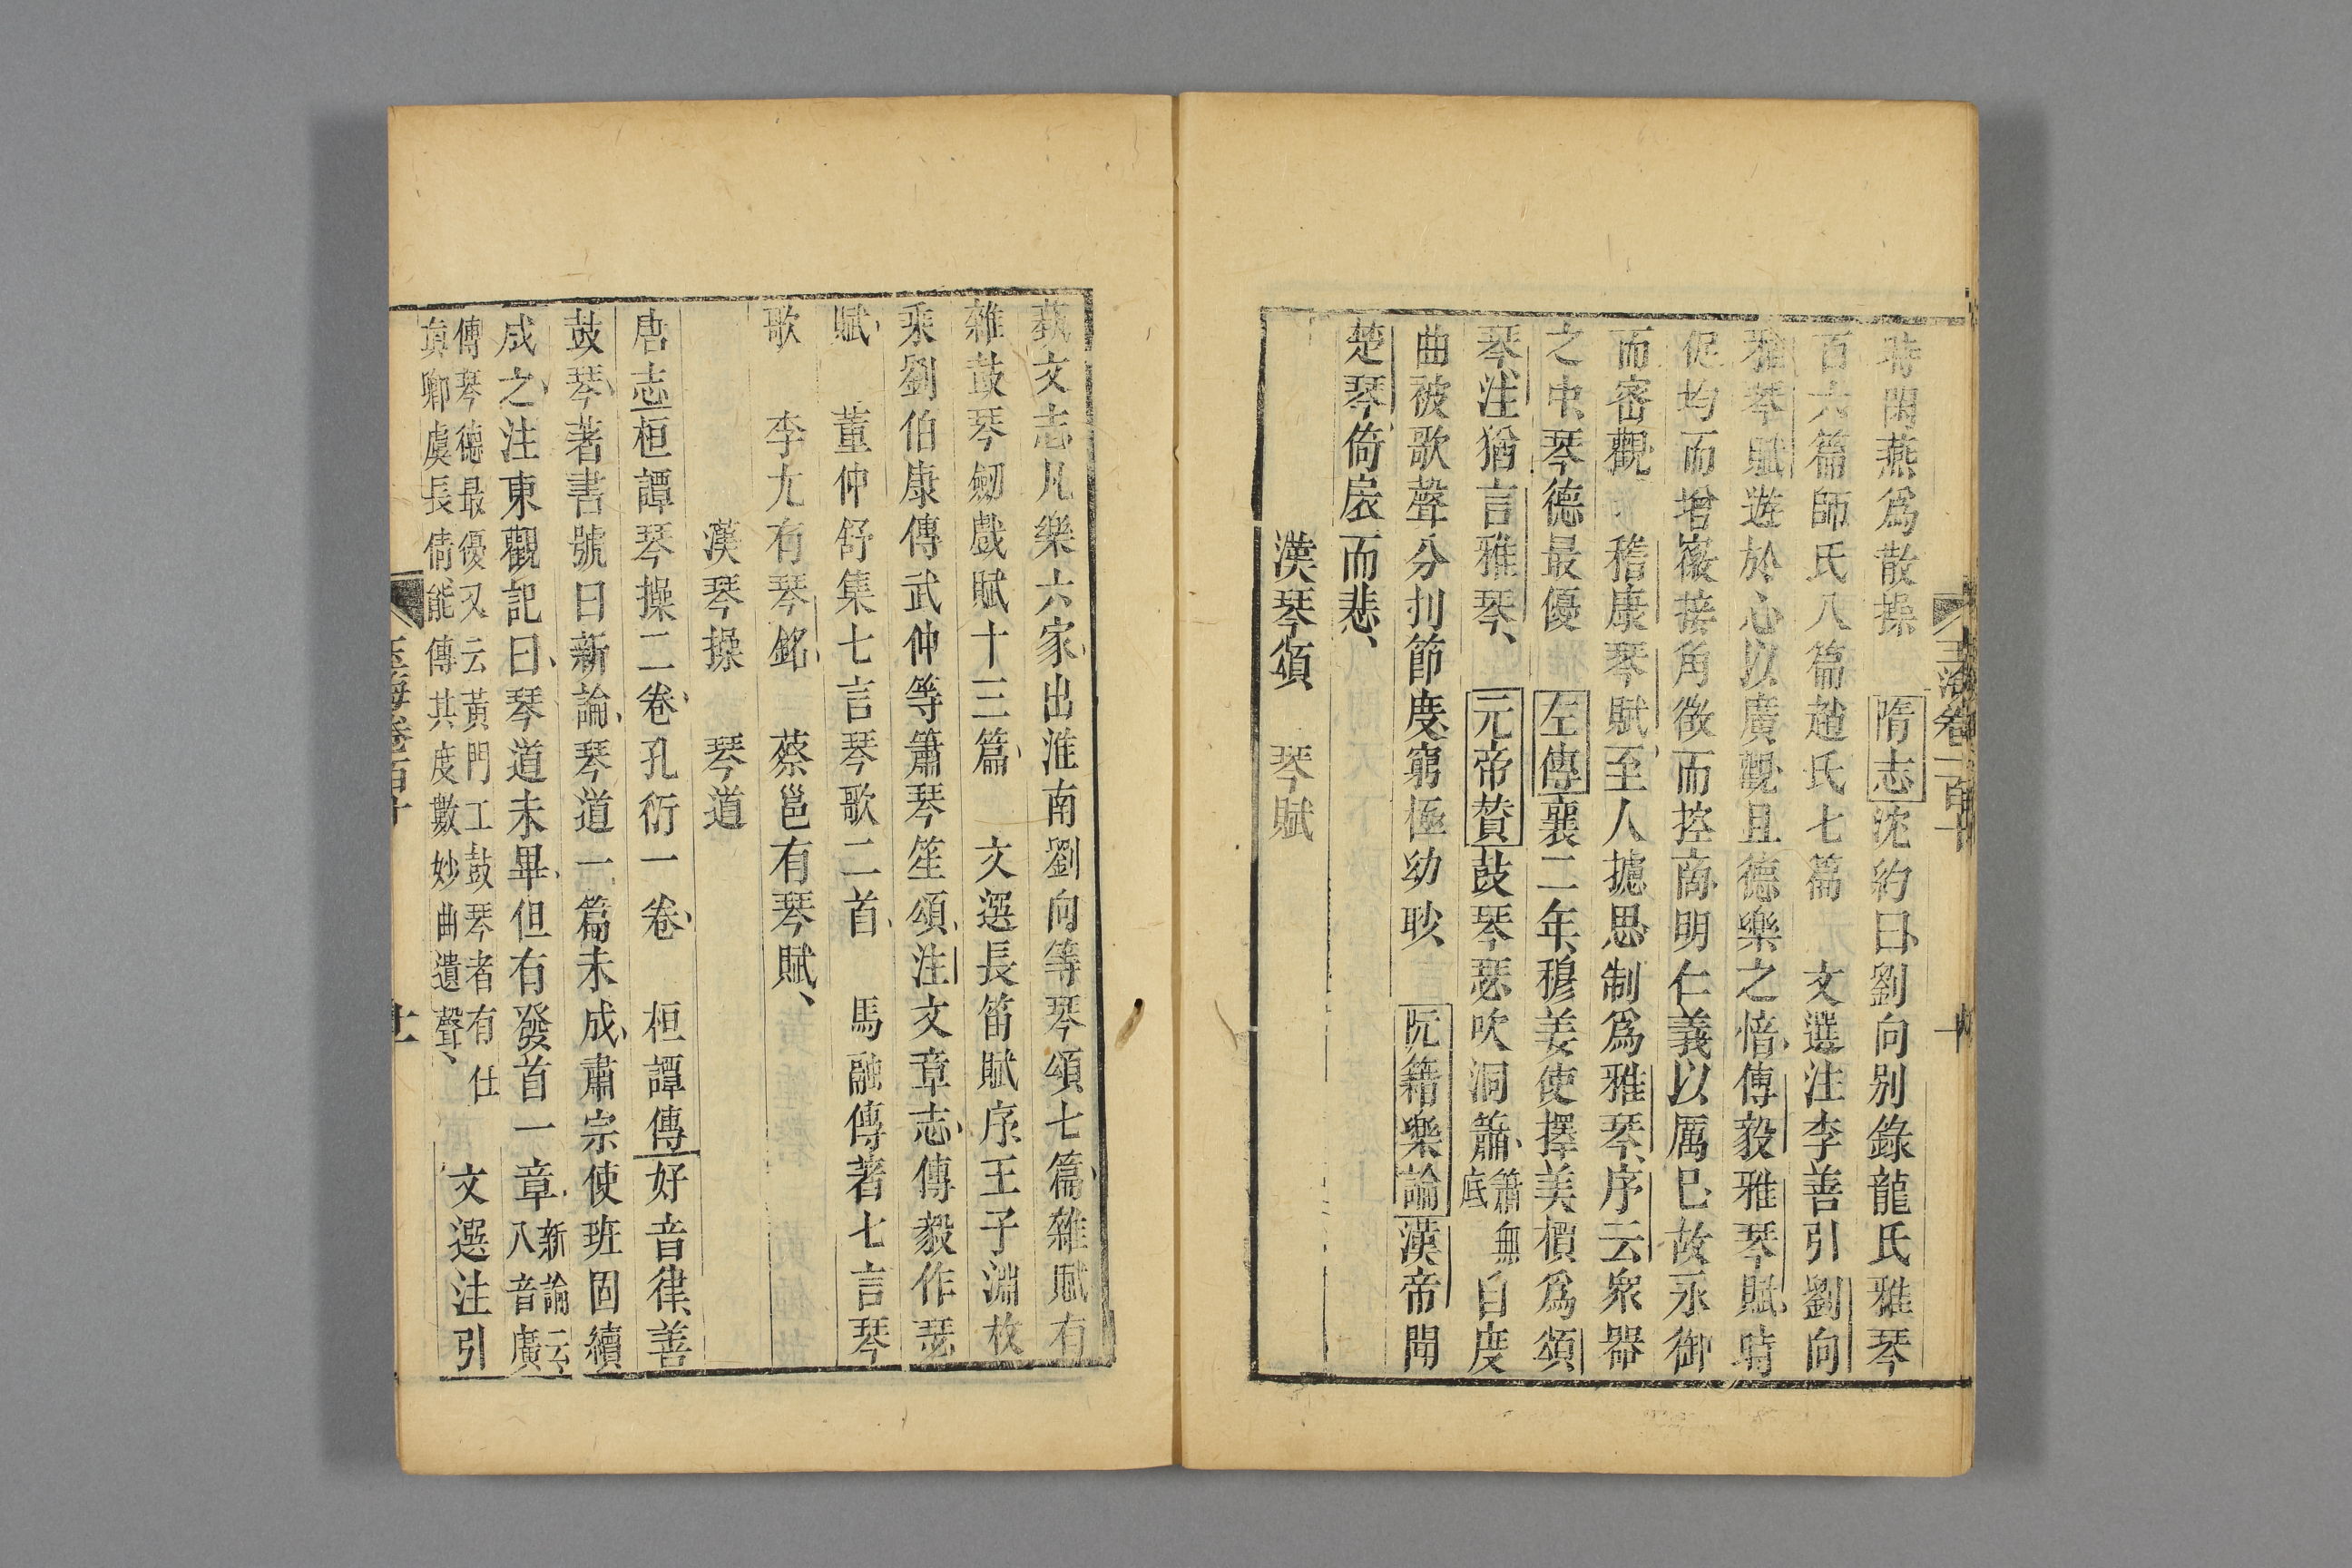 玉海卷一百十
時閑燕爲散操　隋志沈約曰劉向别錄龍氏雅琴
百六篇師氏八篇趙氏七篇　文選注李善引劉向
雅琴賦遊於心以廣觀且德樂之愔傅毅雅琴賦時
促均而增徽接角徵而控商明仁義以厲巳故永御
而密觀　嵇康琴賦至人攄思制爲雅琴序云衆器
之中琴德最優　左傳襄二年穆姜使擇美檟爲頌
琴注猶言雅琴　元帝贊鼓琴瑟吹洞簫簫無底自度
曲被歌聲分刌節度窮極幼眇　阮籍樂論漢帝聞
楚琴倚扆而悲
漢琴頌　琴賦
蓺文志凡樂六家出淮南劉向等琴頌七篇雜賦有
雜鼓琴劒戲賦十三篇　文選長笛賦序王子淵枚
乘劉伯康傅武仲等簫琴笙頌注文章志傅毅作琴
賦　董仲舒集七言琴歌二首　馬融傳著七言琴
歌　李尤有琴銘　蔡邕有琴賦
漢琴操　琴道
唐志桓譚琴操二卷孔衍一卷　桓譚傳好音律善
鼓琴著書號曰新論琴道一篇未成肅宗使班固續
成之注東觀記曰琴道未畢但有發首一章新論云八音廣
傳琴德最優又云黃門工鼓琴者有任
真卿虞長倩能傳其度數妙曲遺聲　文選注引
玉海卷百十
十